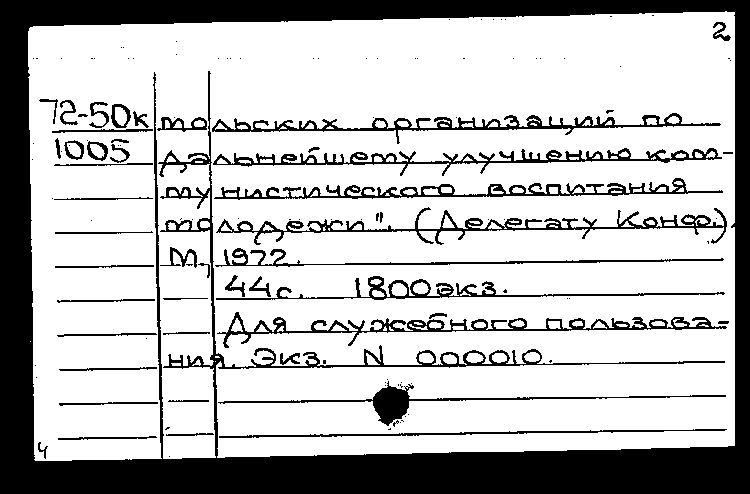 2
72-50к мольских организаций по
1005 дальнейшему улучшению ком-
мунистического воспитания
молодежи". (Делегату Конф.).
М., 1972.
44с. 1800экз.
Для служебного пользова-
ния. Экз. N 000010.
4